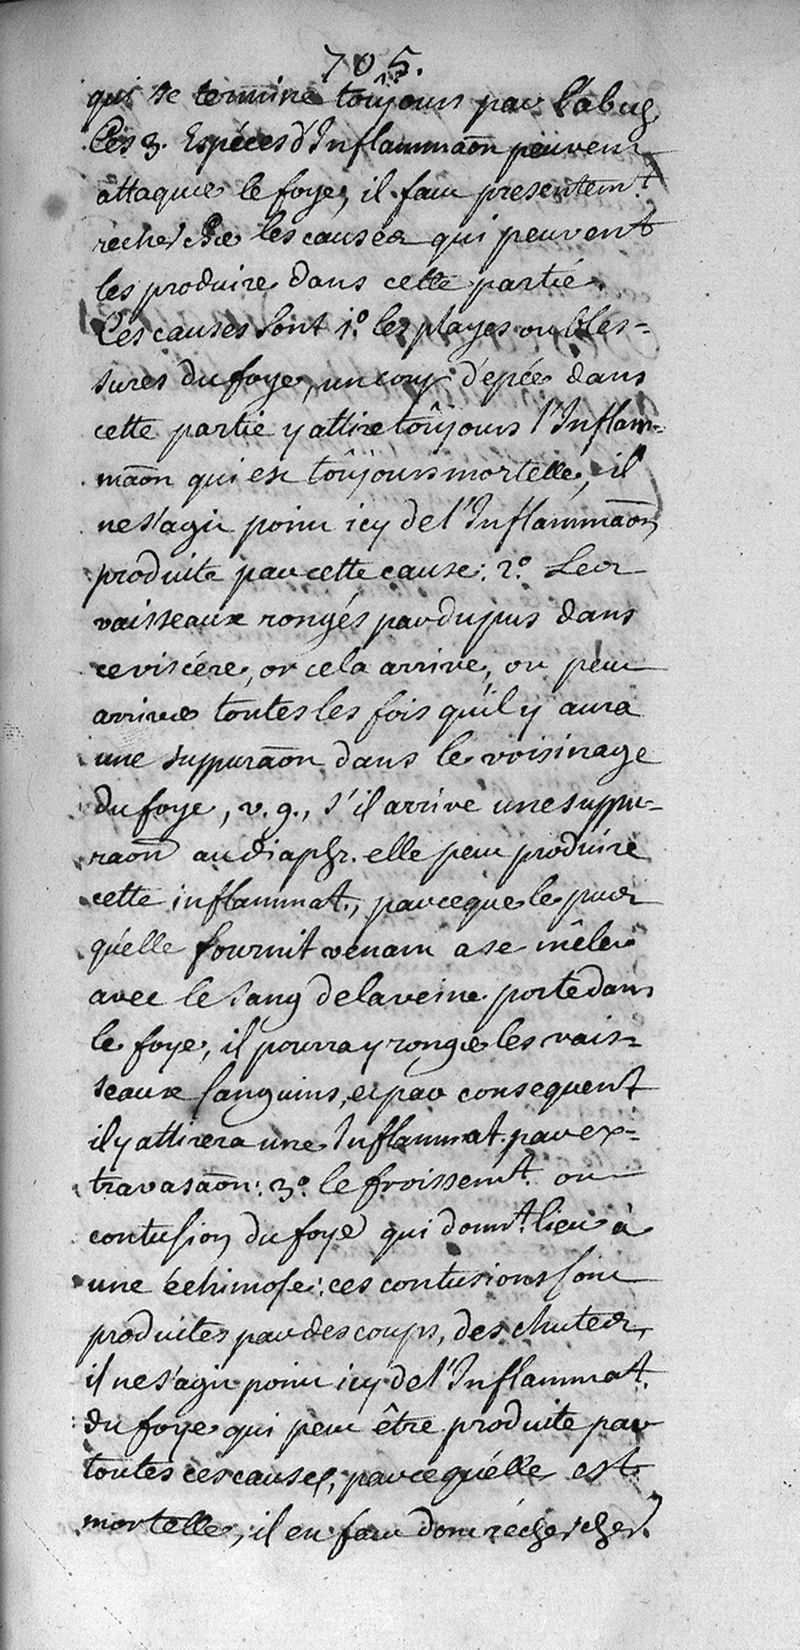 705.
qui se termine toûjours par l'abus
Ces 3. Espéces d'Inflammaõn peuvent
attaquer le foye, il faut presentemt.
rechercher les causes qui peuvent
les produire dans cette partie.
Ces causes sont 1.º les playes ou bles=
sures du foye, un coup d'epée dans
cette partie y attire toûjours l'Inflam=
maõn qui est toûjours mortelle, il
ne s'agit point icy de l'Inflammaõn
produite par cette cause: 2.º Les
vaisseaux rongés par du pus dans
ce viscére, or cela arrive, ou peut
arriver toutes les fois qu'il y aura
une suppuraõn dans le voisinage
du foye, v. g., s'il arrive une suppu=
raõn au diaphr. elle peut produire
cette inflammat., parceque le pus
qu'elle fournit venant a se mêler
avec le sang de la veine porte dans
le foye, il pourra y ronger les vais=
seaux sanguins, et par consequent
il y attirera une Inflammat. par ex=
travasaõn: 3.º le froissemt. ou
contusion du foye qui donnt. lieu à
une échimose: ces contusions sont
produites par des coups, des chutes,
il ne s'agit point icy de l'Inflammat.
du foye qui peut être produite par
toutes ces causes, parce qu'elle est
mortelle, il en faut donc réchercher